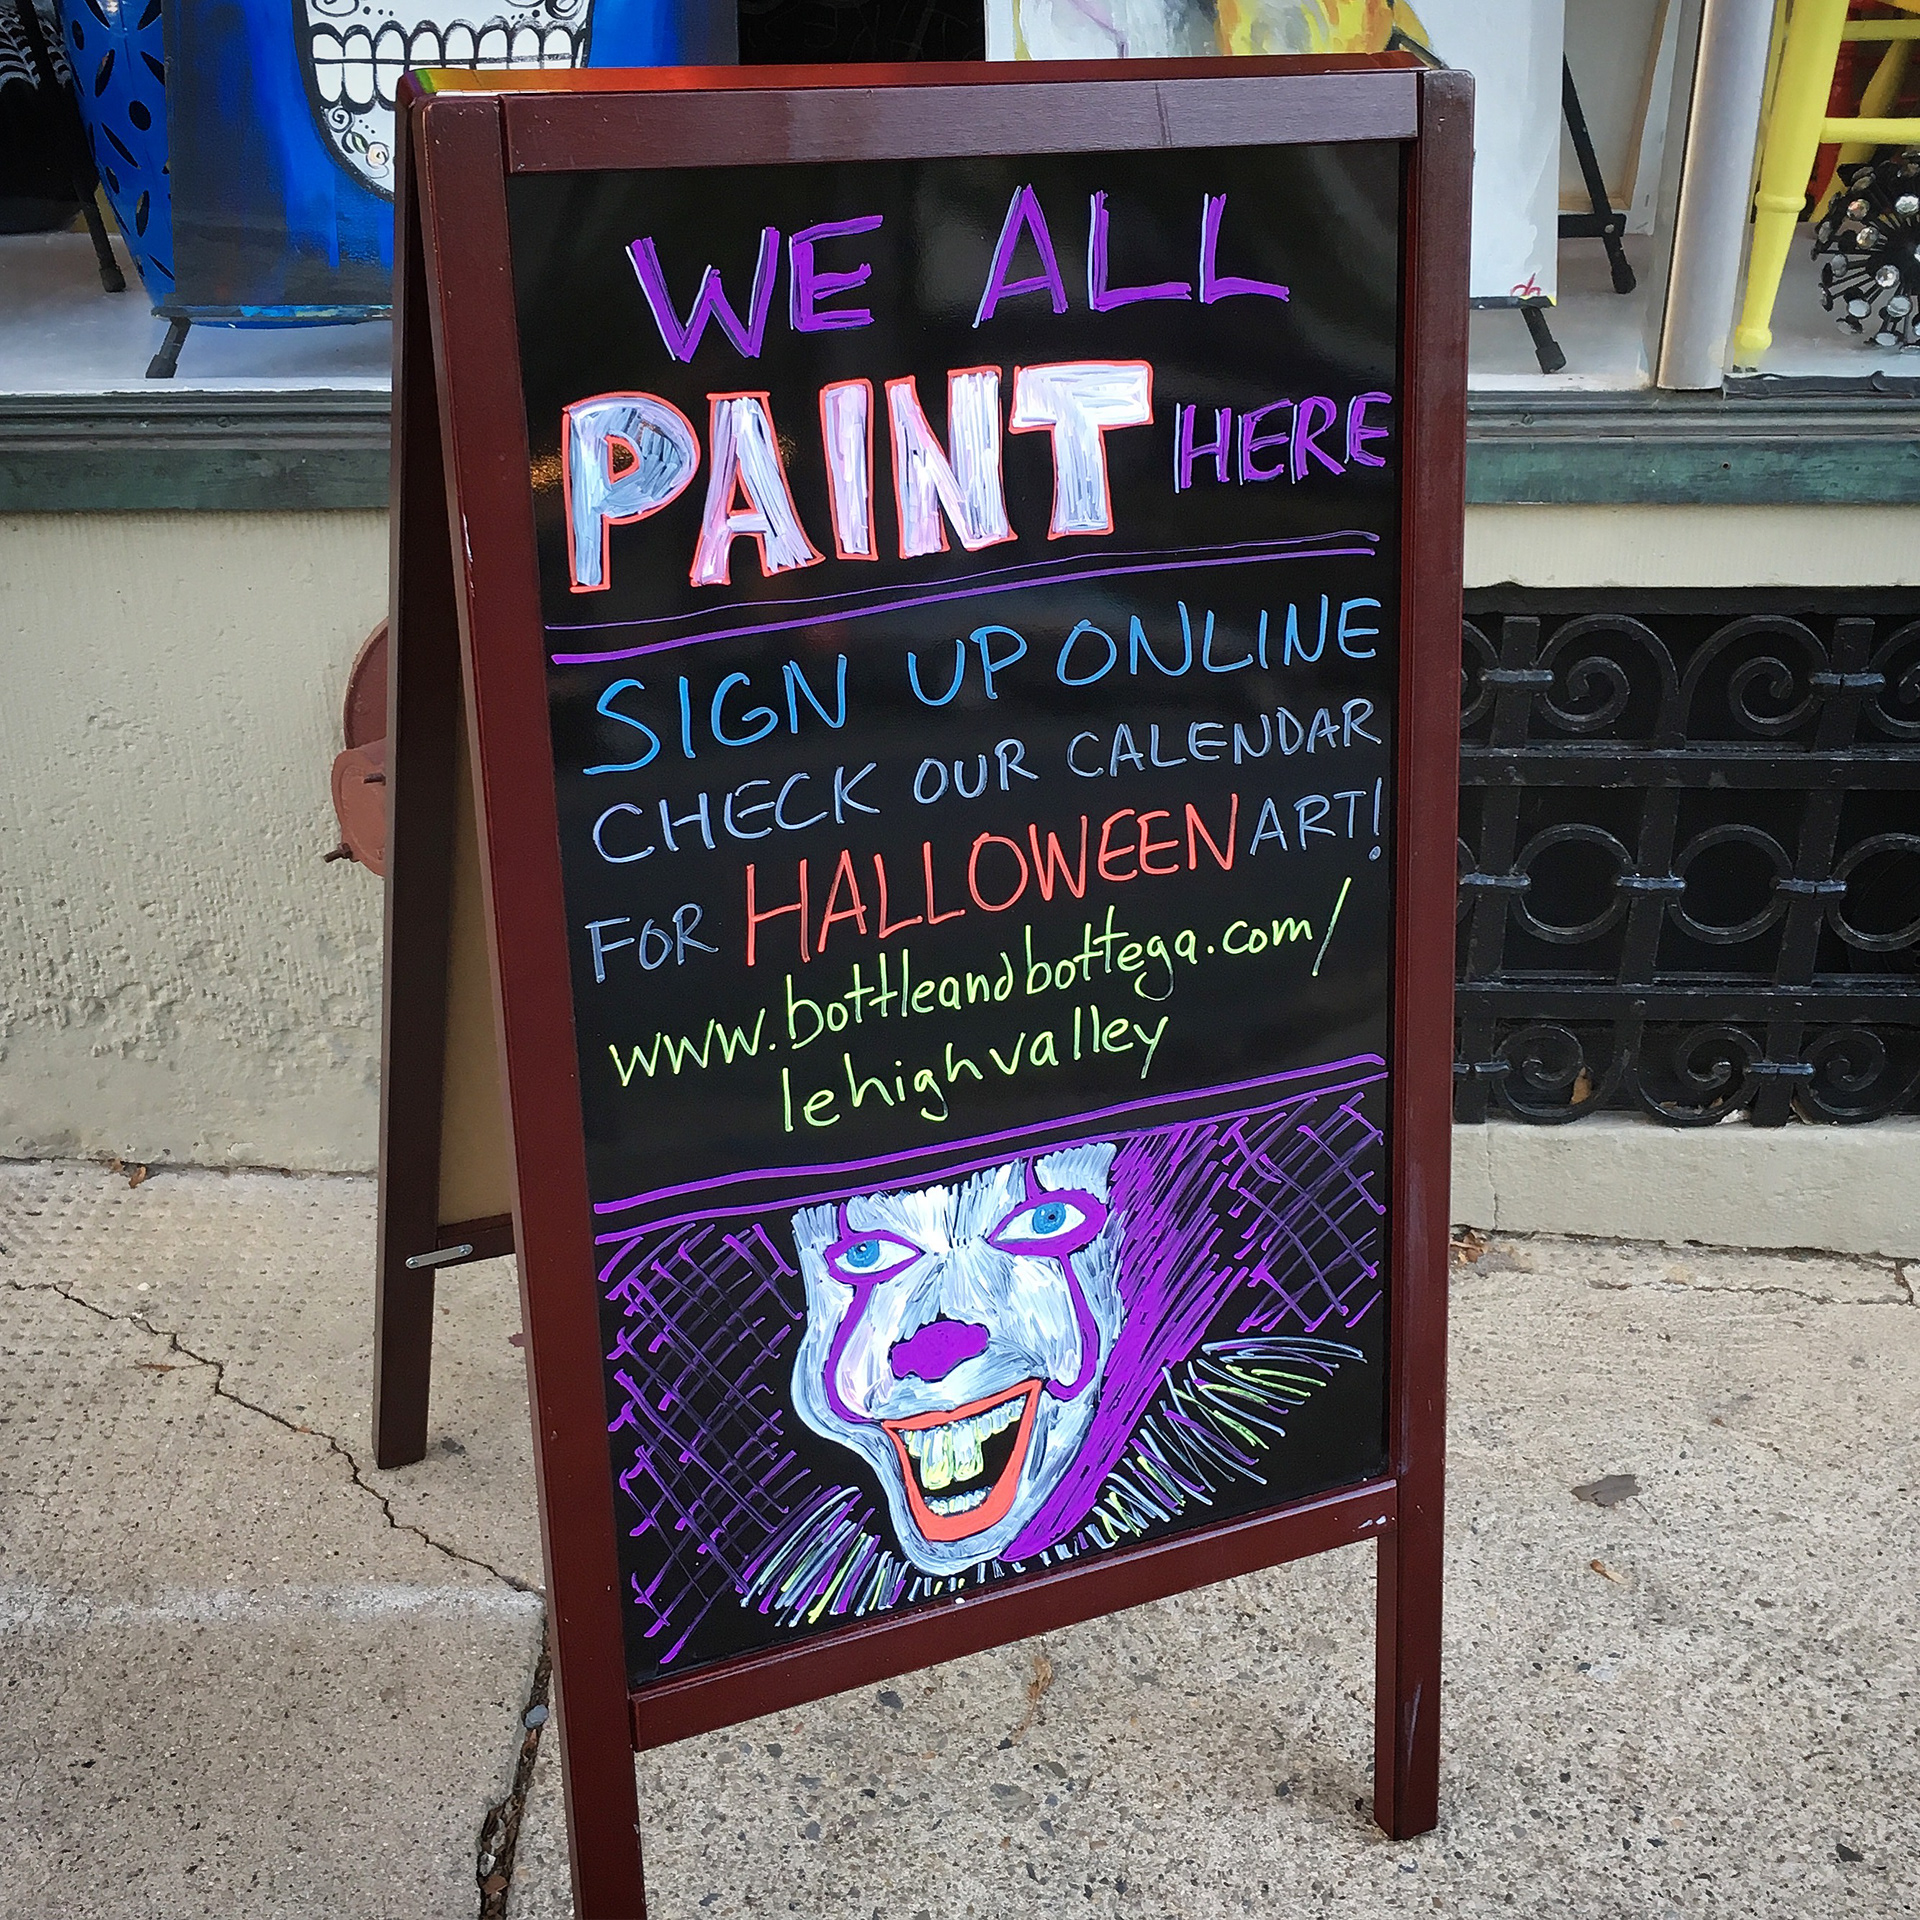 WE ALL
PAINT HERE
SIGN UP ONLINE
CHECK OUR CALENDAR
FOR HALLOWEEN ART!
www.bottleandbottega.com/
lehighvalley